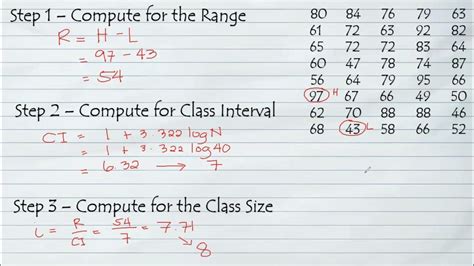 Step 1 – Compute for the Range
R = H - L
= 97 - 43
= 54
Step 2 – Compute for Class Interval
CI = 1 + 3.322 log N
= 1 + 3.322 log 40
= 6.32 → 7
Step 3 – Compute for the Class Size
L = R/CI = 54/7 = 7.71
8
80 84 76 79 63
61 72 63 92 82
65 72 72 83 64
60 47 78 77 60
56 64 79 95 66
97 H 67 66 49 50
62 70 88 88 47
68 43 L 58 66 52